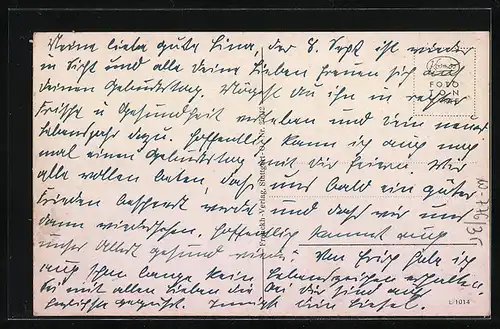 Meine liebe gute Lina, der 8. Sept ist wieder
in Sicht und alle deine Lieben freuen sich auf
deinen Geburtstag. Mögest du ihn in rechter
Frische u Gesundheit verleben und ein neues
Lebensjahr dazu. Hoffentlich kann ich auch noch
mal einen Geburtstag mit dir feiern. Wir
alle wollen beten, daß uns bald ein guter
Frieden beschert werde und daß wir uns
dann wiedersehen. Hoffentlich kommt auch
unser Albert gesund wieder. Von Erich habe ich
auch schon lange kein Lebenszeichen erhalten.
Sei mit allen Lieben die bei dir sind aufs
herzlichste gegrüßt. Innigst dein Liesel.
FOTO
TON
Franckh-Verlag, Stuttgart-
L 1014